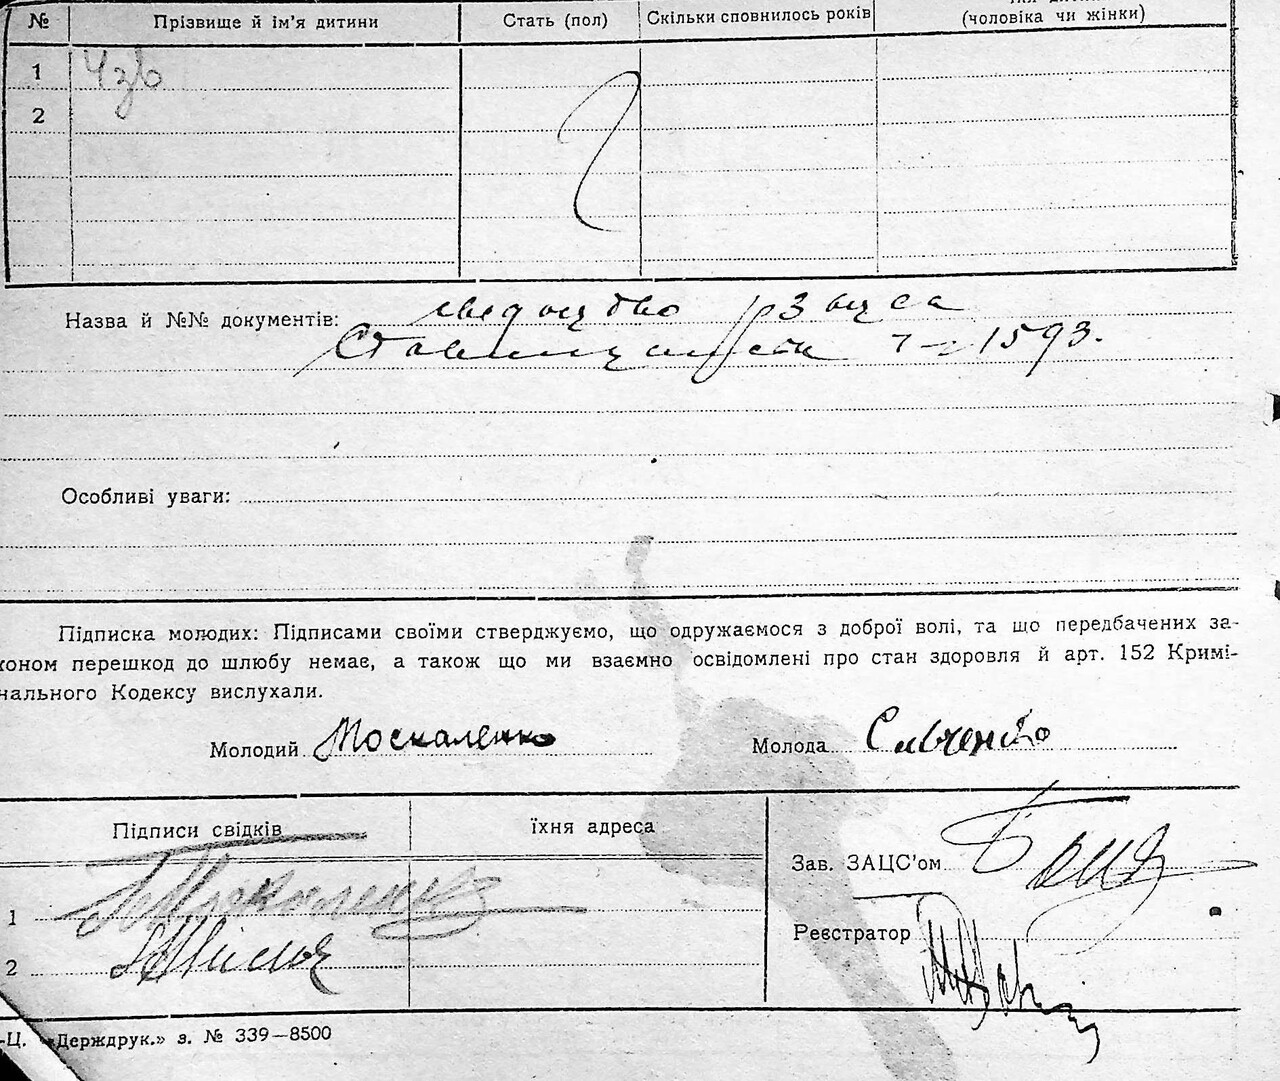 № Прізвище й ім'я дитини Стать (пол) Скільки сповнилось років
(чоловіка чи жінки)
1
2
Назва й №№ документів:
1593.
Особливі уваги:
Підписка молодих: Підписами своїми стверджуємо, що одружаємося з доброї волі, та що передбачених за-
коном перешкод до шлюбу немає, а також що ми взаємно освідомлені про стан здоровля й арт. 152 Кримі-
нального Кодексу вислухали.
Молодий Москаленко Молода Савченко
Підписи свідків їхня адреса
Зав. ЗАЦС'ом
1 Москаленко
Реєстратор
2
-Ц. «Держдрук.» з. № 339—8500